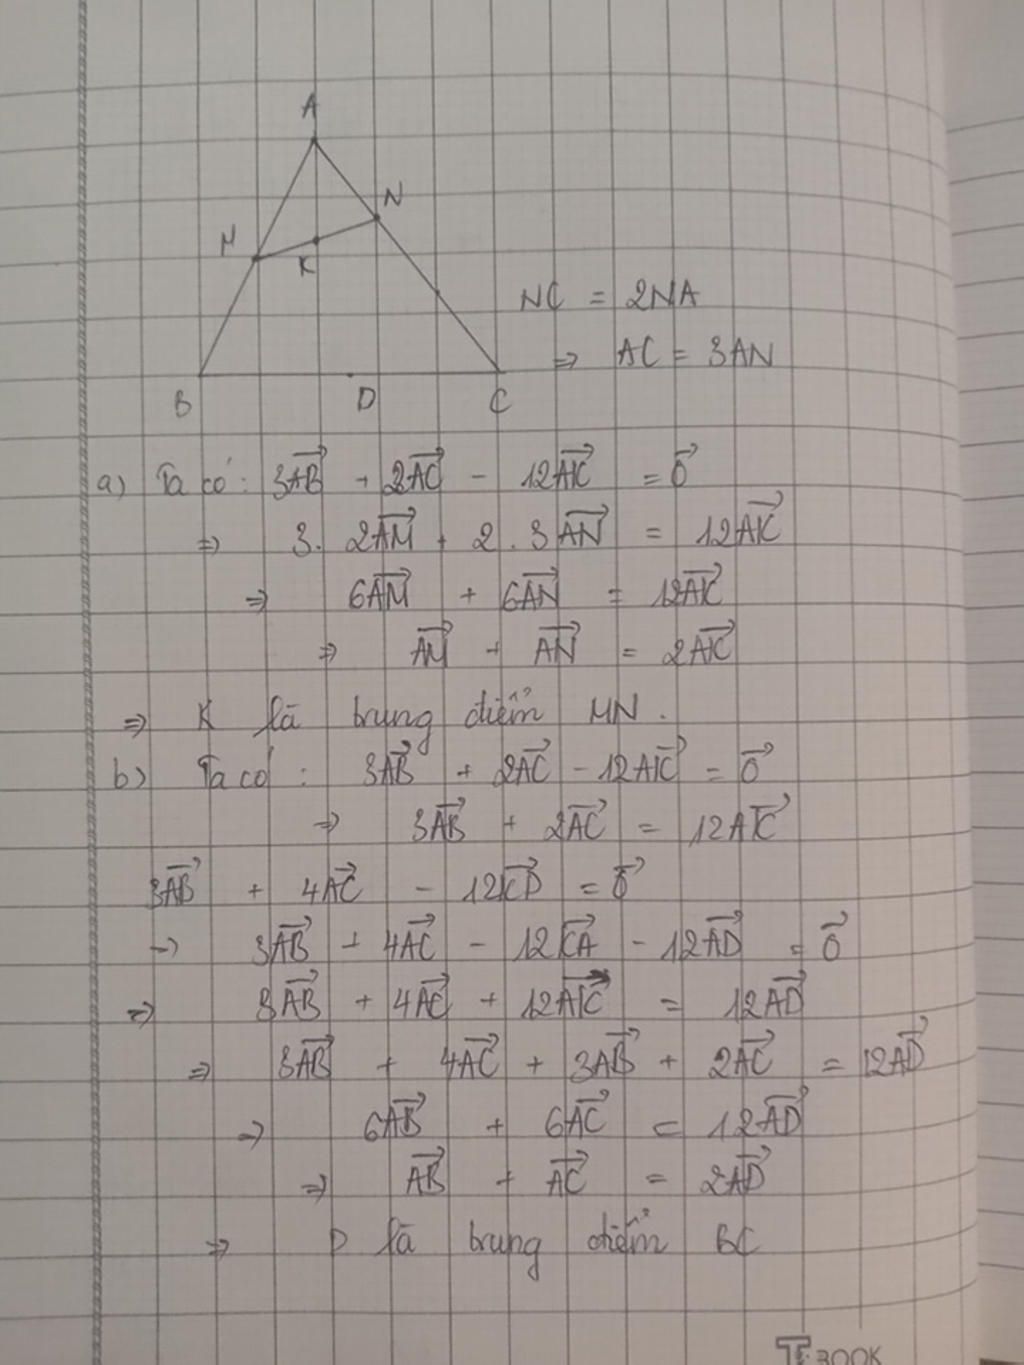 A
N
M
K
NC = 2NA
⇒ AC = 3AN
B D C
a) Ta có: 3AB⃗ + 2AC⃗ - 12AK⃗ = 0⃗
⇒ 3. 2AM⃗ + 2 . 3AN⃗ = 12AK⃗
⇒ 6AM⃗ + 6AN⃗ = 12AK⃗
⇒ AM⃗ + AN⃗ = 2AK⃗
⇒ K là trung điểm MN.
b) Ta có: 3AB⃗ + 2AC⃗ - 12AK⃗ = 0⃗
⇒ 3AB⃗ + 2AC⃗ = 12AK⃗
3AB⃗ + 4AC⃗ - 12KD⃗ = 0⃗
⇒ 3AB⃗ + 4AC⃗ - 12KA⃗ - 12AD⃗ = 0⃗
⇒ 3AB⃗ + 4AC⃗ + 12AK⃗ = 12AD⃗
⇒ 3AB⃗ + 4AC⃗ + 3AB⃗ + 2AC⃗ = 12AD⃗
⇒ 6AB⃗ + 6AC⃗ = 12AD⃗
⇒ AB⃗ + AC⃗ = 2AD⃗
⇒ D là trung điểm BC
BOOK